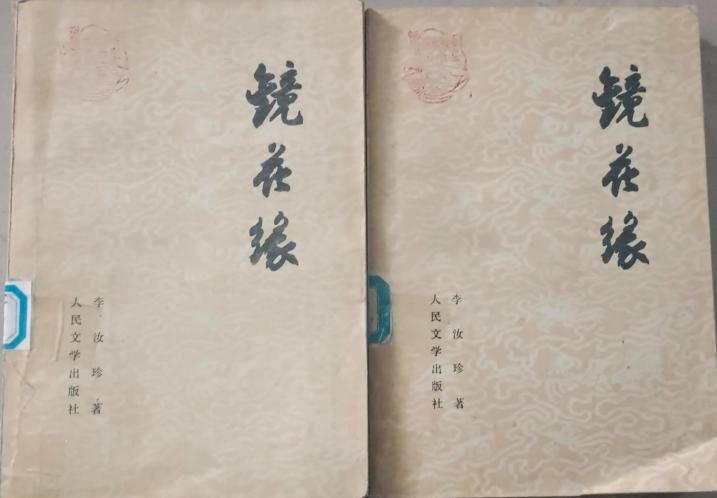 鏡花缘
李汝珍著
人民文学出版社
鏡花缘
李汝珍著
人民文学出版社